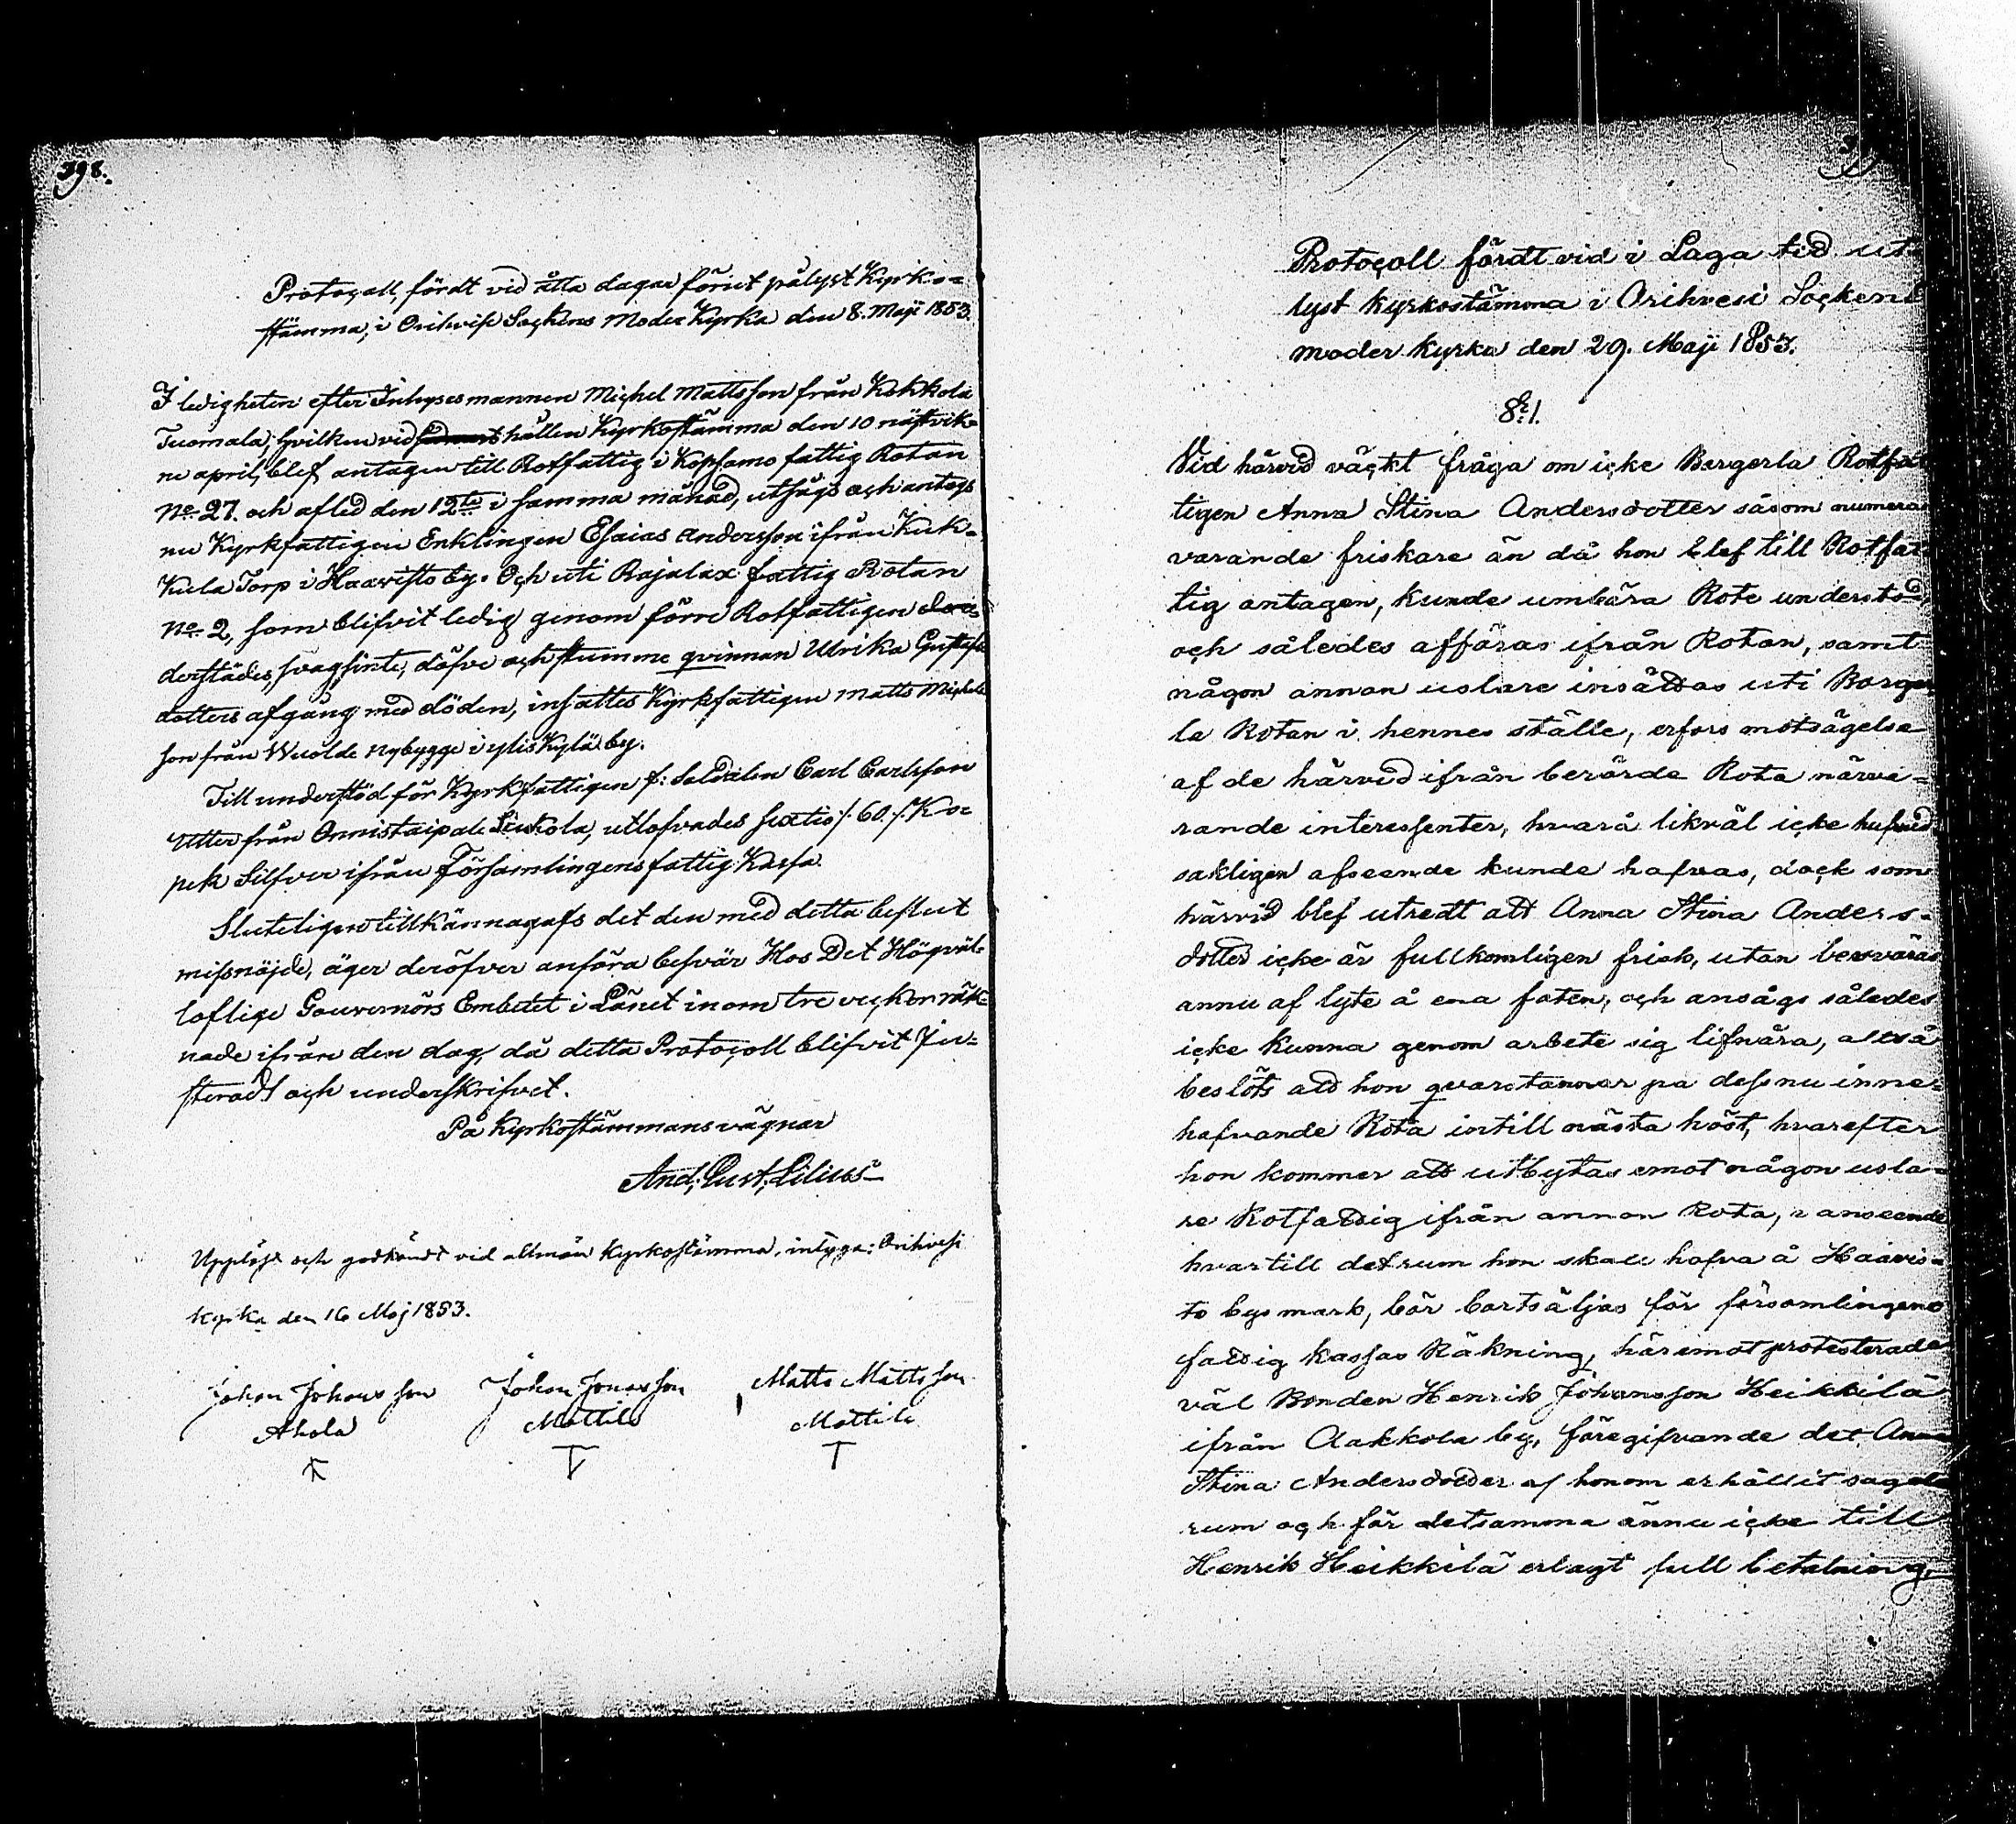 398.
Protocoll, fördt vid åtta dagar förut pålyst Kyrko=
stämma, i Orihvisi Sockens Moder Kyrka den 8. Maji 1853.
I ledigheten efter Inhysesmannen Michel Mattsson från Kokkola
Tuomala, hvilken vid hållen Kyrkostämma den 10 nästvik=
ne april, blef antagen till Rotfattig i Kopsamo fattig Rotan
No 27. och afled den 12te i samma månad, utsågs och antogs
nu Kyrkfattigen Enklingen Esaias Andersson ifrån Kuk=
kula Torp i Haavisto by. Och uti Rajalax fattig Rotan
No 2, som blifvit ledig genom förre Rotfattigen
derstädes, svagsinte, döfve och stumme qvinnan Ulrika Gustafs
dotters afgång med döden, insattes Kyrkfattigen Matts Michels
son från Wuolde nybygge i ylisKylä by.
Till understöd för Kyrkfattigen f: Soldaten Carl Carlsson
Utter från Onnistaipale Siukola, utlofvades sextio /: 60 :/ Ko=
pek Silfver ifrån Församlingens fattig Kassa.
Sluteligen tillkännagafs det den med detta beslut
missnöjde, äger deröfver anföra besvär Hos Det Högväl=
loflige Gouvernörs Embetet i Länet inom tre veckor räk=
nade ifrån den dag, då detta Protocoll blifvit Ju=
steradt och underskrifvet.
På Kyrkostämmans vägnar
And. Gust. Lilius
Uppläst och godkändt vid allmän Kyrkostämma, intyga: Orihvesi
Kyrka den 16 Maj 1853.
Johan Johansson Johan Jonasson Matts Mattsson
Ahola Mattila Mattila
Protocoll fördt vid i Laga tid ut=
lyst kyrkostämma i Orihvesi Sockens
moder kyrka den 29. Maji 1853.
§ 1.
Vid härvid väckt fråga om icke Bergerla Rotfat
tigen Anna Stina Andersdotter såsom numera
varande friskare än då hon blef till Rotfat=
tig antagen, kunde umbära Rote understöd,
och således afföras ifrån Rotan, samt
någon annan uslare insättas uti Berger
la Rotan i hennes ställe, erfors motsägelse
af de härvid ifrån berörde Rota närva=
rande interessenter, hvarå likväl icke hufvud
sakligen afseende kunde hafvas, dock som
härvid blef utredt att Anna Stina Anders=
dotter icke är fullkomligen frisk, utan besväras
annu af lyte å ena foten, och ansågs således
icke kunna genom arbete sig lifnära, altså
beslöts att hon qvarstannar på dess nu inne=
hafvande Rota intill nästa höst, hvarefter
hon kommer att utbytas emot någon usla=
re Rotfattig ifrån annan Rota, i anseende
hvartill det rum hon skall hafva å Haavis=
to bys mark, bör bortsäljas för församlingens
fattig kassas Räkning, häremot protesterade
väl Bonden Henrik Johansson Heikkilä
ifrån Aakkola by, föregifvande det Anna
Stina Andersdotter af honom erhållit sagde
rum och för detsamma ännu icke till
Henrik Heikkilä erlagt full betalning,